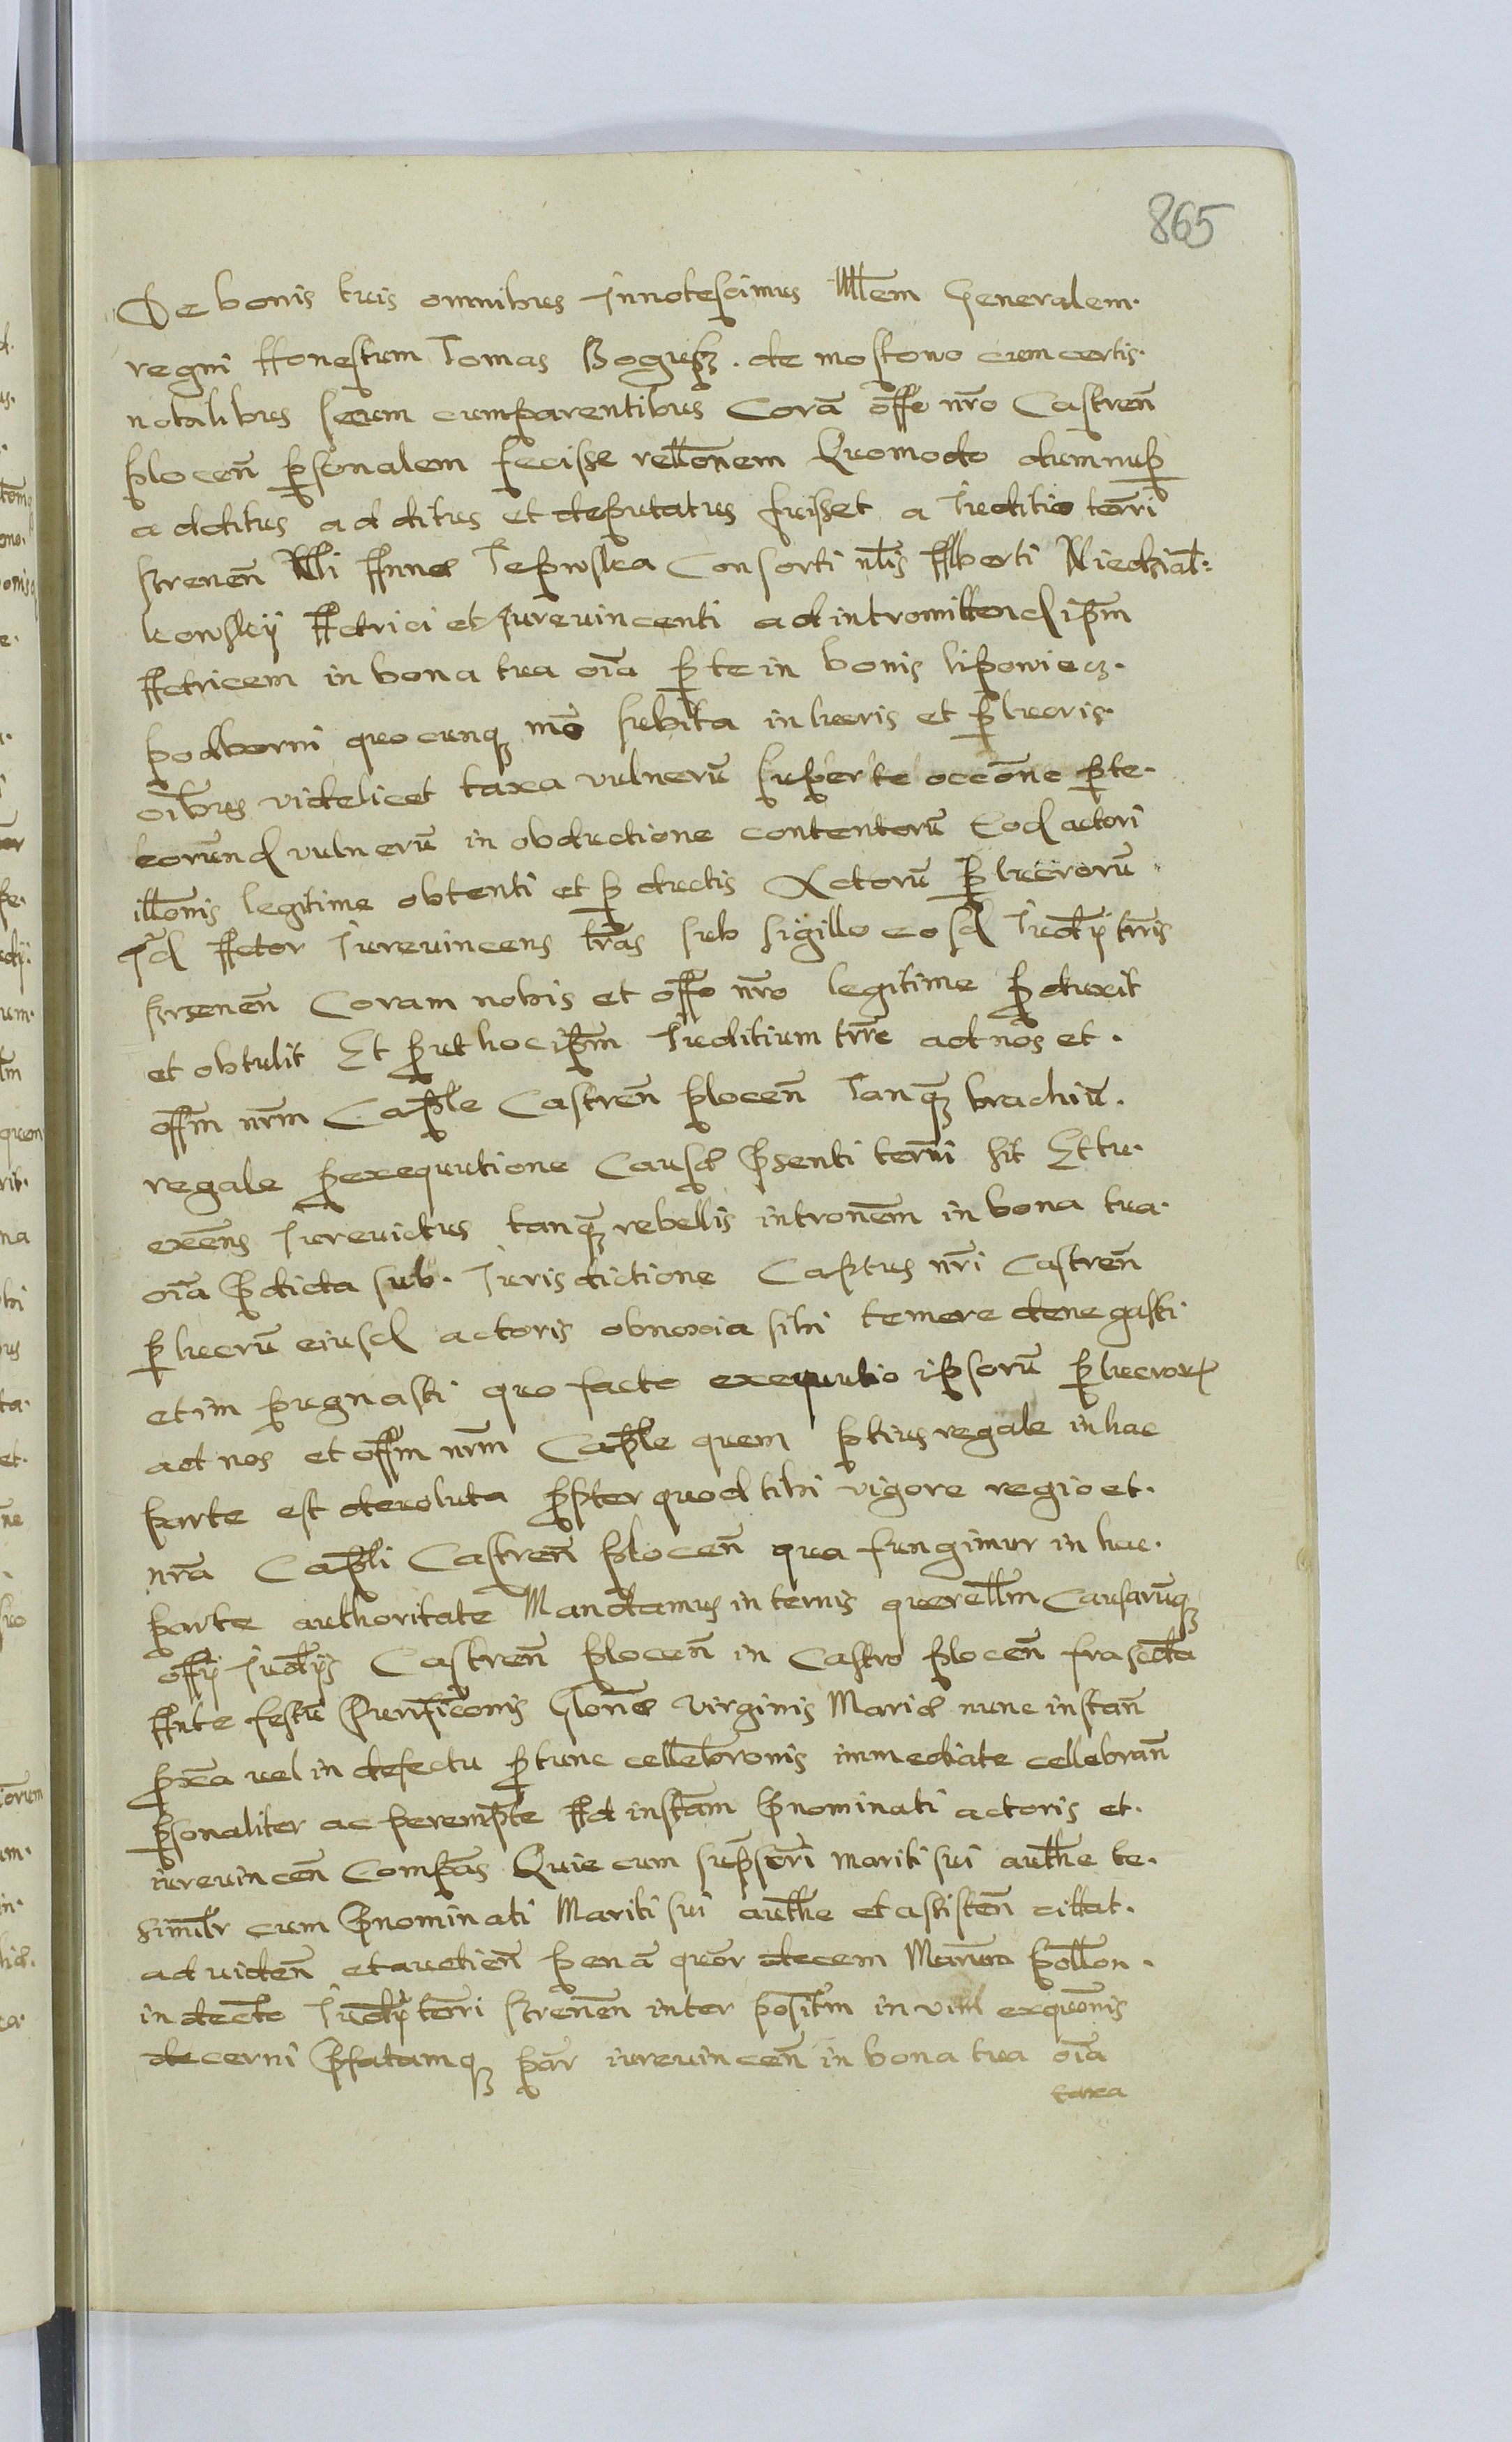 865
De bonis tuis omnibus Innotescimus Mllem Generalem.
regni Honestum Tomas Bogusz. de mostowo cum certis.
notalibus secum cumparentibus Corã offo nr̃o Castren̄
plocen̄ psonalem fecisse rellonem Quomodo dum nup
additus additus et deputatus fuisset a Juditio terri
Srenen̄ Nlli Annes Tepwska Consorti nlis Alberti Niedzial:
kowskij Actrici et Jurevincenti ad intromittend ipm
Actricem in bona tua oĩa p te in bonis liponiecz.
podborni quocunq mõ subita in lucris et p lucris.
oĩbus videlicet taxa vulnerũ super te occõne p te.
eorund vulnerũ in obductione contentorũ Eod actori
illonis legitime obtenti et p ductis Actorũ p lucrorũ
Id Actor Jurevincens lr̃as sub sigillo eosd Judpi trris
Srsenen̄ Coram nobis et offo nr̃o legitime p duxit
et obtulit Et prut hoc ipm Juditium trre ad nos et.
offm nrm Caple Castren̄ plocen̄ Tanq brachiũ.
regale p exequutione Causd p̃senti terri sit Et tu.
exẽns Jurevictus tanq rebellis intronem in bona tua.
oĩa p̃dicta sub. Jurisdictione Captus nr̃i Castren̄
p lucrũ eiusd actoris obnoxia sibi temere denegasti
et im pugnasti quo facto exequutio ipsorũ p lucrorũ
ad nos et offm nrm Caple quem ptius regale in hac
parte est devoluta propter quod tibi vigore regio et.
nr̃a Capli Castren̄ plocen̄ qua fungimur in hac.
parte authoritate Mandamus in ternis querellm Causarũq
offy Judpis Castren̄ plocen̄ in Castro plocen̄ fra secda
Ante festũ Purificonis Glone Virginis Marie nunc instan̄
pxẽa vel in defectu p tunc cellebronis immediate cellebran̄
psonaliter ac perempte Ad instam p̃nominati actoris et.
iurevincen̄ Compas Quie cum supscri mariti sui authe te.
similr cum p̃nominati Mariti sui authe et astisten̄ cittat.
ad viden̄ et audien̄ penã quor decem Marum pollon.
in decto Judpi terri Srenen̄ inter positm in vim exquonis
decerni p̃fatamq par iurevincen̄ in bona tua oĩa
taxa